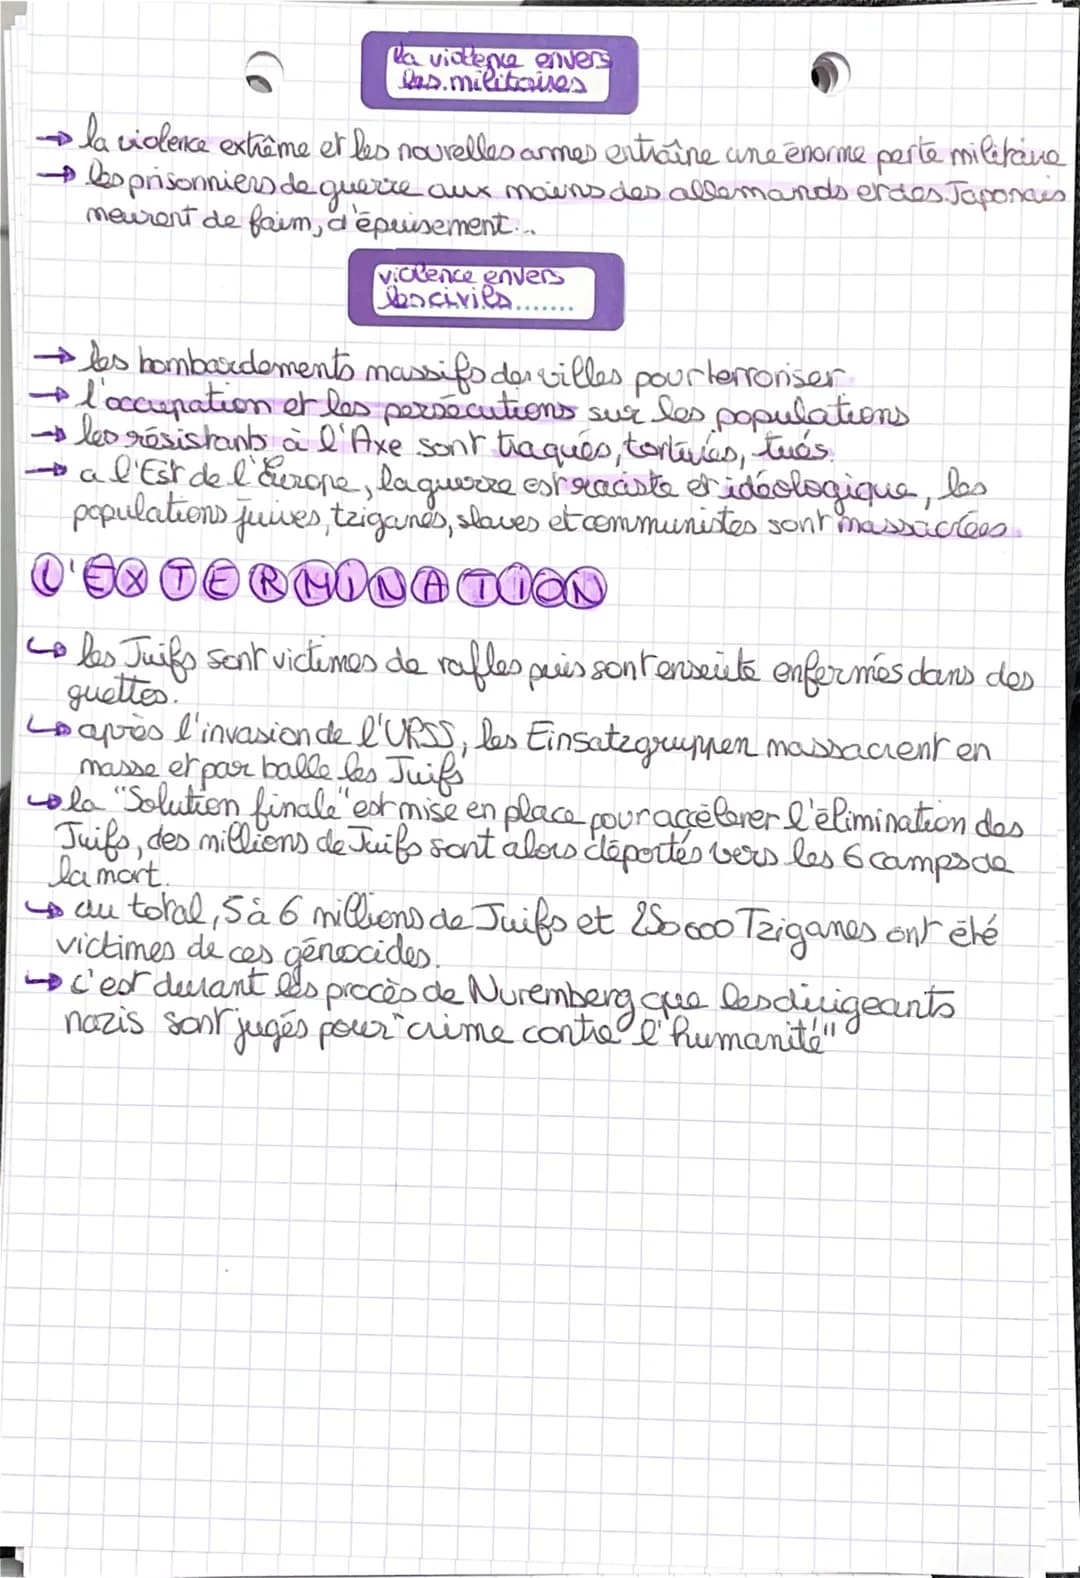 la violence envers
les militaires
→ la violence extrême et les nouvelles armes entraîne une énorme perte militaire
→ les prisonniers de guerre aux mains des allemands et des Japonais
meurent de faim, d'épuisement...
violence envers
les civils.......
→ les bombardements massifs des villes pour terroriser
→ l'occupation et les persécutions sur les populations
→ les résistants à l'Axe sont traqués, torturés, tués.
→ a l'Est de l'Europe, la guerre est raciste et idéologique, les
populations juives, tziganes, slaves et communistes sont massacrées.
L'EXTERMINATION
↳ les Juifs sont victimes de rafles puis sont ensuite enfermés dans des
guettos.
↳ après l'invasion de l'URSS, les Einsatzgruppen massacrent en
masse et par balle les Juifs
↳ la "Solution finale" est mise en place pour accélerer l'élimination des
Juifs, des millions de Juifs sont alors déportés vers les 6 camps de
la mort.
↳ au total, 5 à 6 millions de Juifs et 250 000 Tziganes ont été
victimes de ces génocides.
↳ c'est durant les procès de Nuremberg que les dirigeants
nazis sont jugés pour "crime contre l'humanité"